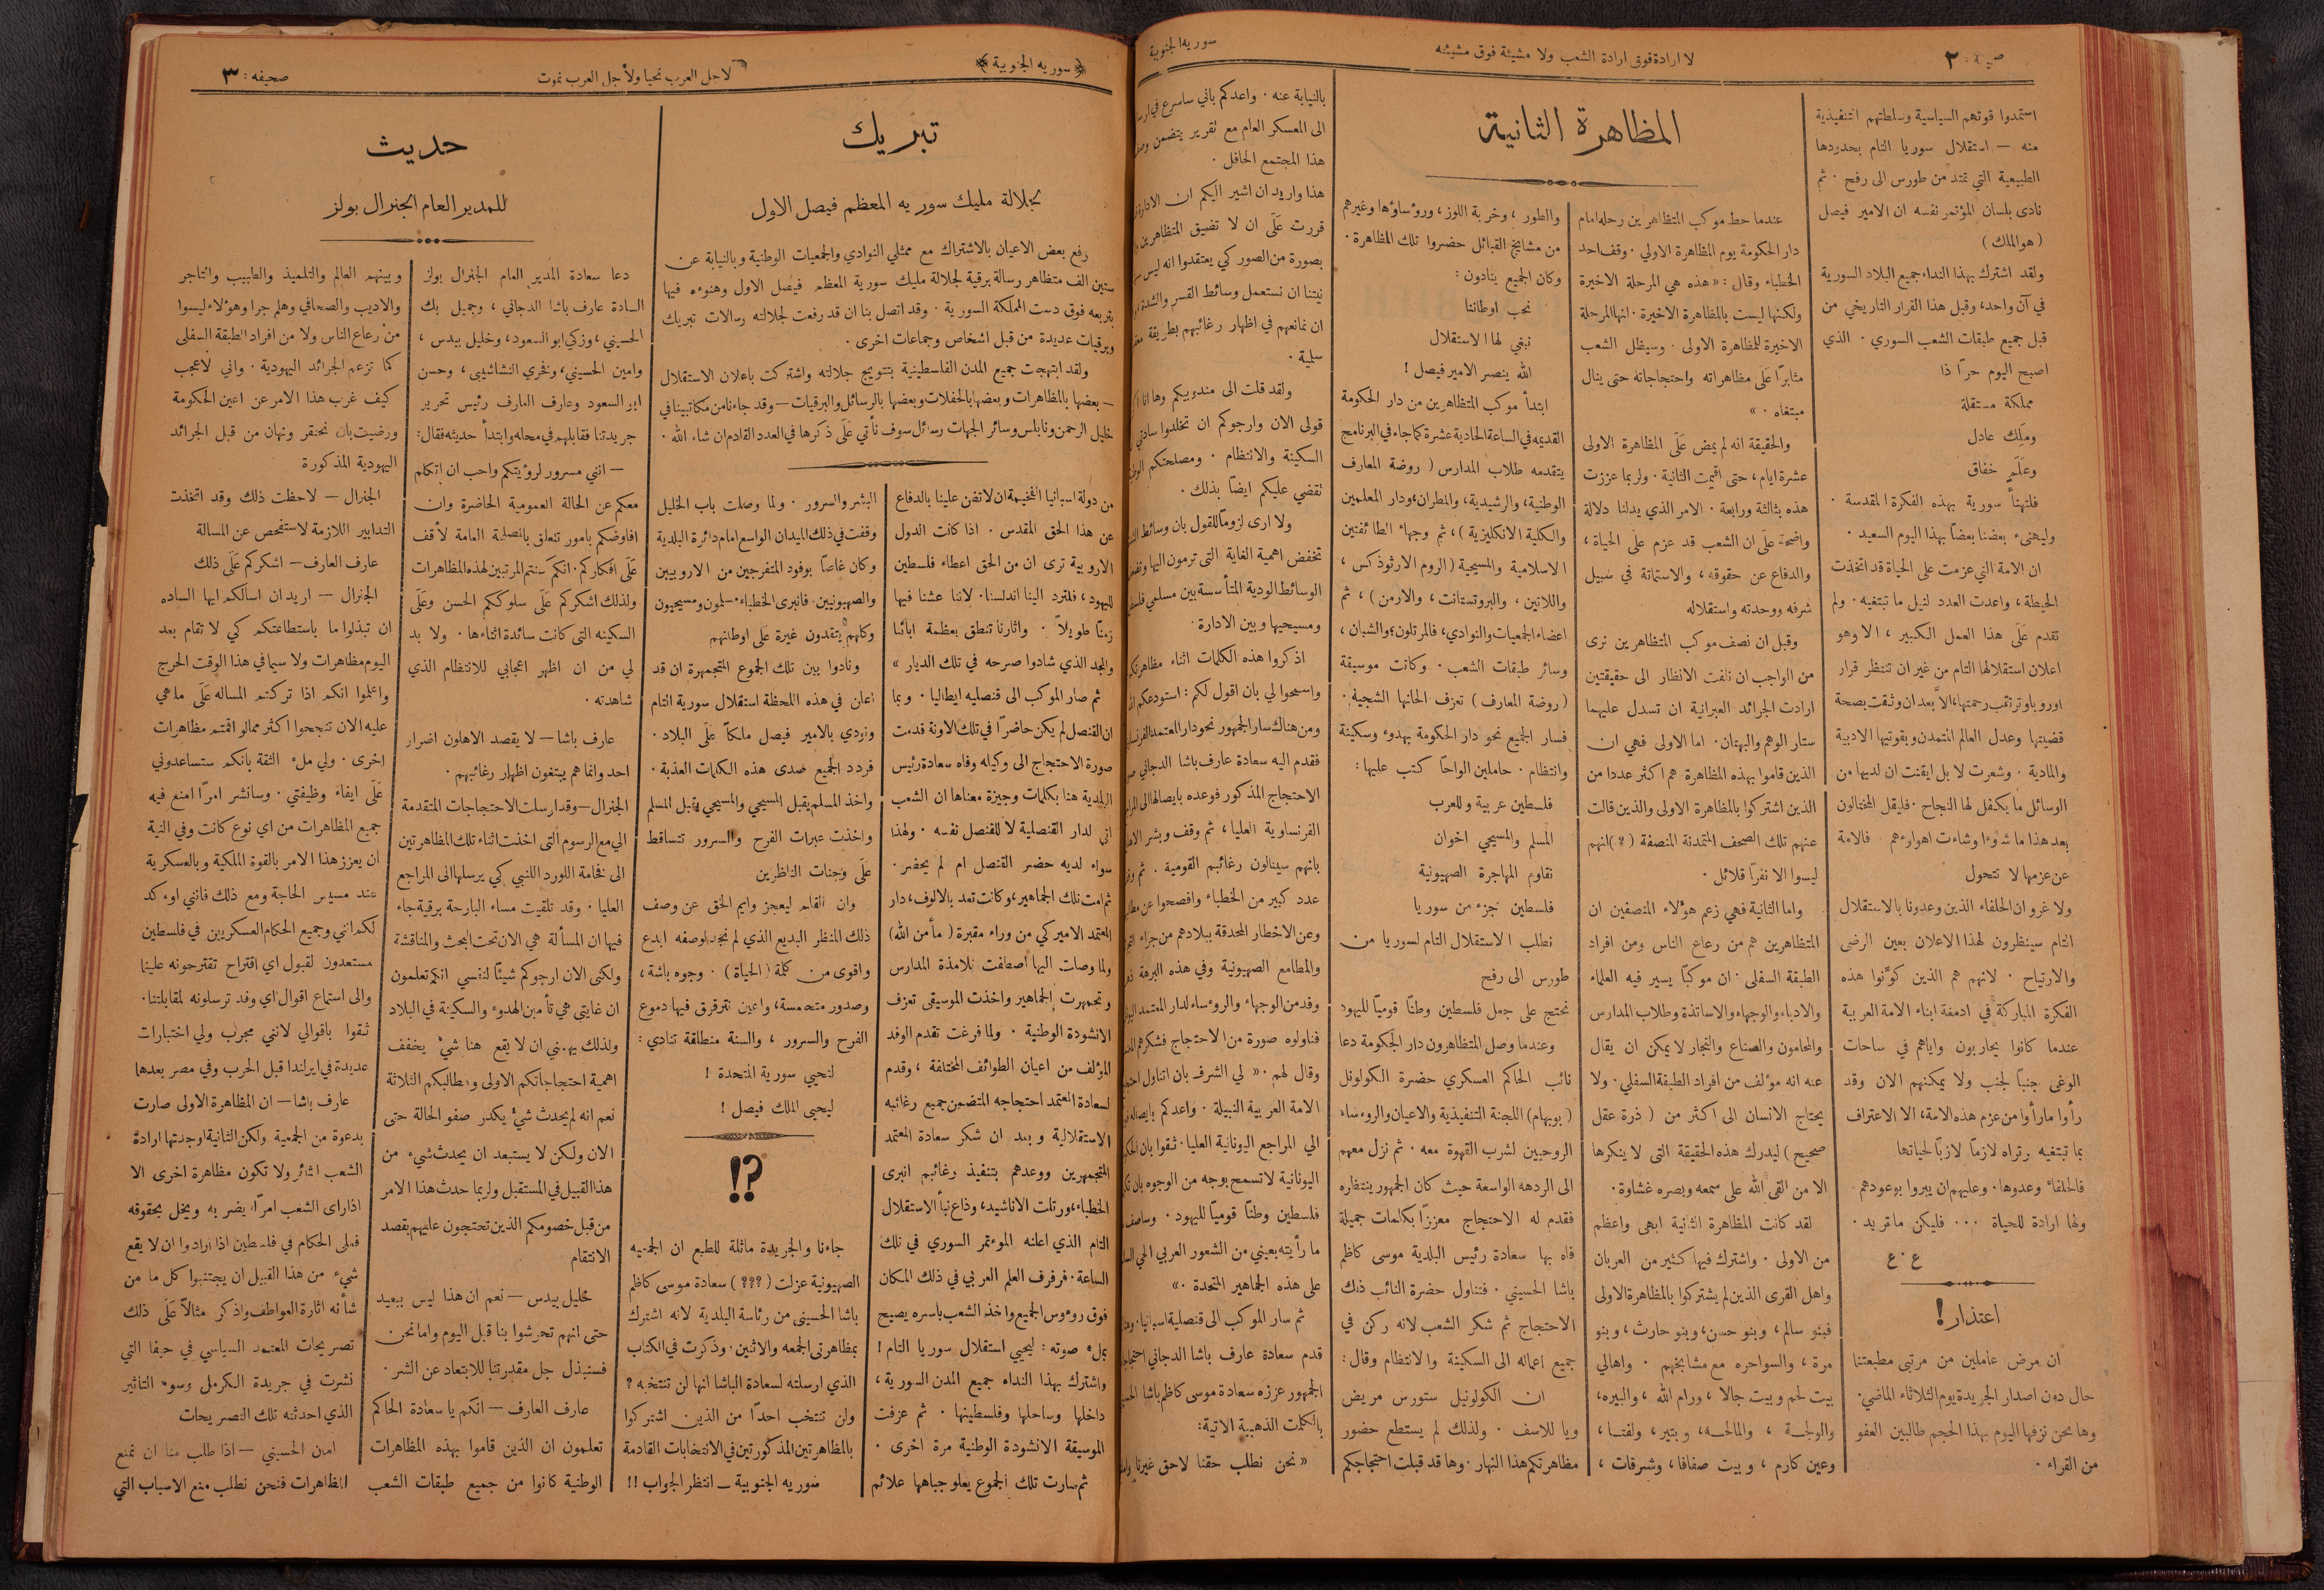 صحيفة : ٢
لا ارادة فوق ارادة الشعب ولا مشيئة فوق مشيئته
سوريه الجنوبية
استمدوا قوتهم السياسية وسلطتهم التنفيذية
منه — استقلال سوريا التام بحدودها
الطبيعية التي تمتد من طورس الى رفح . ثم
نادى بلسان المؤتمر نفسه ان الامير فيصل
( هو الملك )
ولقد اشترك بهذا النداء جميع البلاد السورية
في آن واحد، وقبل هذا القرار التاريخي من
قبل جميع طبقات الشعب السوري . الذي
اصبح اليوم حرًّا ذا
مملكة مستقلة
ومَلِك عادل
وعَلَم خفاق
فلتهنأ سورية بهذه الفكرة المقدسة .
وليهنىء بعضنا بعضًا بهذا اليوم السعيد .
ان الامة التي عزمت على الحياة قد اتخذت
الحيطة ، واعدت العدد لنيل ما تبتغيه . ولم
تقدم عَلَى هذا العمل الكبير ، الا وهو
اعلان استقلالها التام من غير ان تنتظر قرار
اوروبا وترتقب رحمتها، الاَّ بعد ان وثقت بصحة
قضيتها وعدل العالم المتمدن وبقوتيها الادبية
والمادية . وشعرت لا بل ايقنت ان لديها من
الوسائل ما يكفل لها النجاح . فليقل المختالون
بعد هذا ما شاؤا وشاءت اهواؤهم فالامة
عن عزمها لا تتحول
ولا غرو ان الحلفاء الذين وعدونا بالاستقلال
التام سينظرون لهذا الاعلان بعين الرضى
والارتياح . لانهم هم الذين كوَّنوا هذه
الفكرة المباركة في ادمغة ابناء الامة العربية
عندما كانوا يحاربون واياهم في ساحات
الوغى جنبًا لجنب ولا يمكنهم الان وقد
رأوا ما رأوا من عزم هذه الامة، الا الاعتراف
بما تبتغيه وتراه لازمًا لازبًا لحياتها
فالحلفاء وعدوها . وعليهم ان يبروا بوعودهم .
ولها ارادة للحياة ... فليكن ما تريد .
ع . ع
اعتذار !
ان مرض عاملين من مرتبي مطبعتنا
حال دون اصدار الجريدة يوم الثلاثاء الماضي .
وها نحن نزفها اليوم بهذا الحجم طالبين العفو
من القراء .
المظاهرة الثانية
عندما حط موكب المتظاهرين رحله امام
دار الحكومة يوم المظاهرة الاولى . وقف احد
الخطباء وقال : « هذه هي المرحلة الاخيرة
ولكنها ليست بالمظاهرة الاخيرة . انها المرحلة
الاخيرة للمظاهرة الاولى . وسيظل الشعب
مثابرًا عَلَى مظاهراته واحتجاجاته حتى ينال
مبتغاه . »
والحقيقة انه لم يمض عَلَى المظاهرة الاولى
عشرة ايام ، حتى اقيمت الثانية . ولربما عززت
هذه بثالثة ورابعة . الامر الذي يدلنا دلالة
واضحة على ان الشعب قد عزم عَلَى الحياة ،
والدفاع عن حقوقه ، والاستماتة في سبيل
شرفه ووحدته واستقلاله
وقبل ان نصف موكب المتظاهرين نرى
من الواجب ان نلفت الانظار الى حقيقتين
ارادت الجرائد العبرانية ان تسدل عليهما
ستار الوهم والبهتان . اما الاولى فهي ان
الذين قاموا بهذه المظاهرة هم اكثر عددا من
الذين اشتركوا بالمظاهرة الاولى والذين قالت
عنهم تلك الصحف المتمدنة المنصفة (؟) انهم
ليسوا الا نفرًا قلائل .
واما الثانية فهي زعم هؤلاء المنصفين ان
المتظاهرين هم من رعاع الناس ومن افراد
الطبقة السفلى . ان موكبًا يسير فيه العلماء
والادباء والوجهاء والاساتذة وطلاب المدارس
والمحامون والصناع والتجار لا يمكن ان يقال
عنه انه مؤلف من افراد الطبقة السفلى . ولا
يحتاج الانسان الى اكثر من ( ذرة عقل
صحيح ) ليدرك هذه الحقيقة التى لا ينكرها
الا من القى الله على سمعه وبصره غشاوة .
لقد كانت المظاهرة الثانية ابهى واعظم
من الاولى . واشترك فيها كثير من العربان
واهل القرى الذين لم يشتركوا بالمظاهرة الاولى
فبنو سالم ، وبنو حسن، وبنو حارث ، وبنو
مرة ، والسواحره مع مشايخهم . واهالي
بيت لحم وبيت جالا ، ورام الله ، والبيره،
والولجة ، والمالحه، وبتير، ولفتا ،
وعين كارم ، وبيت صفافا ، وشرفات ،
والطور ، وخربة اللوز، ورؤساؤها وغيرهم
من مشايخ القبائل حضروا تلك المظاهرة .
وكان الجميع ينادون :
نحب اوطاننا
نبغي لها الاستقلال
الله ينصر الامير فيصل !
ابتدأ موكب المتظاهرين من دار الحكومة
القديمه في الساعة الحادية عشرة كما جاء في البرنامج
يتقدمه طلاب المدارس ( روضة المعارف
الوطنية، والرشيدية، والمطران، ودار المعلمين
والكلية الانكليزية )، ثم وجهاء الطائفتين
الاسلامية والمسيحية ( الروم الارثوذكس ،
واللاتين ، والبروتستانت ، والارمن ) ، ثم
اعضاء الجمعيات والنوادي، فالمرتلون، والشبان ،
وسائر طبقات الشعب . وكانت موسيقة
( روضة المعارف ) تعزف الحانها الشجية .
فسار الجميع نحو دار الحكومة بهدوء وسكينة
وانتظام . حاملين الواحًا كتب عليها :
فلسطين عربية وللعرب
المسلم والمسيحي اخوان
نقاوم المهاجرة الصهيونية
فلسطين جزء من سوريا
نطلب الاستقلال التام لسوريا من
طورس الى رفح
نحتج على جعل فلسطين وطنًا قوميًا لليهود
وعندما وصل المتظاهرون دار الحكومة دعا
نائب الحاكم العسكري حضرة الكولونل
( بوبهام ) اللجنة التنفيذية والاعيان والرؤساء
الروحيين لشرب القهوة معه . ثم نزل معهم
الى الردهه الواسعة حيث كان الجمهور ينتظره
فقدم له الاحتجاج معززًا بكلمات جميلة
فاه بها سعادة رئيس البلدية موسى كاظم
باشا الحسيني . فتناول حضرة النائب ذلك
الاحتجاج ثم شكر الشعب لانه ركن في
جميع اعماله الى السكينة والانتظام وقال :
ان الكولونيل ستورس مريض
ويا للاسف . ولذلك لم يستطع حضور
مظاهرتكم هذا النهار . وها قد قبلت احتجاجكم
بالنيابة عنه . واعدكم باني ساسرع في
الى المعسكر العام مع تقرير يتضمن
هذا المجتمع الحافل .
هذا واريد ان اشير اليكم ان الادارة
قررت عَلَى ان لا تضيق المتظاهرين
بصورة من الصور كي يعتقدوا انه ليس
نيتنا ان نستعمل وسائط القسر والشدة
ان نمانعهم في اظهار رغائبهم بطريقة
سلمية .
ولقد قلت الى مندوبيكم وها انا
قولى الان وارجوكم ان تخلدوا سادتي
السكينة والانتظام . ومصلحتكم
تقضي عليكم ايضًا بذلك .
ولا ارى لزومًا للقول بان وسائط
تخفض اهمية الغاية التى ترمون اليها
الوسائط الودية المتأسسة بين مسلمي
ومسيحيها وبين الادارة .
اذكروا هذه الكلمات اثناء
واسمحوا لي بان اقول لكم : استودعكم
ومن هناك سار الجمهور نحو دار المعتمد
فقدم اليه سعادة عارف باشا الدجاني
الاحتجاج المذكور فوعده بايصالها الى
الفرنساوية العليا ، ثم وقف وبشر
بانهم سينالون رغائبهم القومية .
عدد كبير من الخطباء وافصحوا عن
وعن الاخطار المحدقة ببلادهم من جراء
والمطامع الصهيونية وفي هذه البرهة
وفد من الوجهاء والرؤساء لدار المعتمد
فناولوه صورة من الاحتجاج فشكرهم
وقال لهم .« لي الشرف بان اتناول
الامة العربية النبيلة . واعدكم
الي المراجع اليونانية العليا . ثقوا بان
اليونانية لا تسمح بوجه من الوجوه بان
فلسطين وطنًا قوميًا لليهود .
ما رأيته بعيني من الشعور العربي الحي
على هذه الجماهير المتحدة .»
ثم سار الموكب الى قنصلية اسبانيا .
قدم سعادة عارف باشا الدجاني
الجمهور عززه سعادة موسى كاظم باشا
بالكلمات الذهبية الاتية:
« نحن نطلب حقنا لاحق غيرنا
﴿ سوريه الجنوبية ﴾
لاجل العرب نحيا ولأجل العرب نموت
صحيفه : ٣
تبريك
لجلالة مليك سوريه المعظم فيصل الاول
رفع بعض الاعيان بالاشتراك مع ممثلي النوادي والجمعيات الوطنية وبالنيابة عن
ستين الف متظاهر رسالة برقية لجلالة مليك سورية المعظم فيصل الاول وهنوءه فيها
بتربعه فوق دست المملكة السورية . وقد اتصل بنا ان قد رفعت لجلالته رسالات تبريك
وبرقيات عديدة من قبل اشخاص وجماعات اخرى .
ولقد ابتهجت جميع المدن الفلسطينية بتتويج جلالته واشتركت باعلان الاستقلال
— بعضها بالمظاهرات وبعضها بالحفلات وبعضها بالرسائل والبرقيات — وقد جاءنا من مكاتبينا في
خليل الرحمن ونابلس وسائر الجهات رسائل سوف نأتي عَلَى ذكرها في العدد القادم ان شاء الله .
من دولة اسبانيا الفخيمة ان لا تضن علينا بالدفاع
عن هذا الحق المقدس . اذا كانت الدول
الاروبية ترى ان من الحق اعطاء فلسطين
لليهود ، فلترد الينا اندلسنا . لاننا عشنا فيها
زمنًا طويلاً . واثارنا تنطق بعظمة ابائنا
والمجد الذي شادوا صرحه في تلك الديار »
ثم صار الموكب الى قنصليه ايطاليا . وبما
ان القنصل لم يكن حاضرًا في تلك الاونة قدمت
صورة الاحتجاج الى وكيله وفاه سعادة رئيس
البلدية هنا بكلمات وجيزة معناها ان الشعب
اتي لدار القنصلية لا للقنصل نفسه . ولهذا
سواء لديه حضر القنصل ام لم يحضر .
ثم امت تلك الجماهير، وكانت تعد بالالوف، دار
المعتمد الاميركي من وراء مقبرة ( مأمن الله )
ولما وصلت اليها اصطفت تلامذة المدارس
وتجمهرت الجماهير واخذت الموسيقى تعزف
الانشودة الوطنية . ولما فرغت تقدم الوفد
المؤلف من اعيان الطوائف المختلفة ، وقدم
لسعادة المعتمد احتجاجه المتضمن جميع رغائبه
الاستقلالية وبعد ان شكر سعادة المعتمد
المتجمهرين ووعدهم بتنفيذ رغائبهم انبرى
الخطباء، ورتلت الاناشيد، وذاع نبأ الاستقلال
التام الذي اعلنه المؤتمر السوري في تلك
الساعة . فرفرف العلم العربي في ذلك المكان
فوق رؤوس الجميع واخذ الشعب باسره يصيح
بملء صوته : ليحيي استقلال سوريا التام !
واشترك بهذا النداء جميع المدن السورية ،
داخلها وساحلها وفلسطينها . ثم عزفت
الموسيقة الانشودة الوطنية مرة اخرى .
ثم صارت تلك الجموع يعلو جباهها علائم
البشر والسرور . ولما وصلت باب الخليل
وقفت في ذلك الميدان الواسع امام دائرة البلدية
وكان غاصًا بوفود المتفرجين من الاروبيين
والصهيونيين. فانبرى الخطباء مسلمون ومسيحيون
وكلهم يتقدون غيرة عَلَى اوطانهم
ونادوا بين تلك الجموع المتجمهرة ان قد
اعلن في هذه اللحظة استقلال سورية التام
ونودي بالامير فيصل ملكًا عَلَى البلاد .
فردد الجميع صدى هذه الكلمات العذبة .
واخذ المسلم يقبل المسيحي والمسيحي يقبل المسلم
واخذت عبرات الفرح والسرور تتساقط
عَلَى وجنات الناظرين
وان القلم ليعجز وايم الحق عن وصف
ذلك المنظر البديع الذي لم نجد لوصفه ابدع
واقوى من كلمة ( الحياة ) . وجوه باشة ،
وصدور متحمسة، واعين تترقرق فيها دموع
الفرح والسرور ، والسنة منطلقة تنادي :
لتحيي سورية المتحدة !
ليحيى الملك فيصل !
؟!!
جاءنا والجريدة ماثلة للطبع ان الجمعيه
الصهيونية عزلت (؟؟؟) سعادة موسى كاظم
باشا الحسينى من رئاسة البلدية لانه اشترك
بمظاهرتى الجمعه والاثنين . وذكرت في الكتاب
الذي ارسلته لسعادة الباشا انها لن تنتخبه ؟
ولن تنتخب احدًا من الذين اشتركوا
بالمظاهرتين المذكورتين في الانتخابات القادمة
سوريه الجنوبية — انتظر الجواب !!
حديث
للمدير العام الجنرال بولز
دعا سعادة المدير العام الجنرال بولز
السادة عارف باشا الدجاني ، وجميل بك
الحسيني ، وزكي ابو السعود، وخليل بيدس ،
وامين الحسيني، وفخري النشاشيبى ، وحسن
ابو السعود وعارف العارف رئيس تحرير
جريدتنا فقابلهم في محله وابتدأ حديثه فقال:
— انني مسرور لرؤيتكم واحب ان اتكلم
معكم عن الحالة العمومية الحاضرة وان
افاوضكم بامور تتعلق بالمصلحة العامة لأقف
عَلَى افكاركم . انكم كنتم المرتبين لهذه المظاهرات
ولذلك اشكركم عَلَى سلوككم الحسن وعَلَى
السكينه التى كانت سائدة اثناءها . ولا بد
لي من ان اظهر اعجابي للانتظام الذي
شاهدته .
عارف باشا — لا يقصد الاهلون اضرار
احد وانما هم يبتغون اظهار رغائبهم .
الجنرال — وقد ارسلت الاحتجاجات المتقدمة
الي مع الرسوم التى اخذت اثناء تلك المظاهرتين
الى فخامة اللورد اللنبي كي يرسلها الى المراجع
العليا . وقد تلقيت مساء البارحة برقية جاء
فيها ان المسألة هي الان تحت البحث والمناقشة
ولكنى الان ارجوكم شيئًا لنفسي انكم تعلمون
ان غايتى هي تأمين الهدوء والسكينة في البلاد
ولذلك يهمني ان لا يقع هنا شيء يخفف
اهمية احتجاجاتكم الاولى ومطالبكم الثلاثة
نعم انه لم يحدث شيء يكدر صفو الحالة حتى
الان ولكن لا يستبعد ان يحدث شيء من
هذا القبيل في المستقبل ولربما حدث هذا الامر
من قبل خصومكم الذين تحتجون عليهم بقصد
الانتقام
خليل بيدس — نعم ان هذا ليس ببعيد
حتى انهم تحرشوا بنا قبل اليوم واما نحن
فسنبذل جل مقدرتنا للابتعاد عن الشر .
عارف العارف — انكم يا سعادة الحاكم
تعلمون ان الذين قاموا بهذه المظاهرات
الوطنية كانوا من جميع طبقات الشعب
وبينهم العالم والتلميذ والطبيب والتاجر
والاديب والصحافي وهلم جرا وهؤلاء ليسوا
من رعاع الناس ولا من افراد الطبقة السفلى
كما تزعم الجرائد اليهودية . واني لاعجب
كيف غرب هذا الامر عن اعين الحكومة
ورضيت بان نحتقر ونهان من قبل الجرائد
اليهودية المذكورة
الجنرال — لاحظت ذلك وقد اتخذت
التدابير اللازمة لاستفحص عن المسالة
عارف العارف — اشكركم عَلَى ذلك
الجنرال — اريد ان اسألكم ايها الساده
ان تبذلوا ما باستطاعتكم كي لا تقام بعد
اليوم مظاهرات ولا سيما في هذا الوقت الحرج
واعلموا انكم اذا تركتم المساله عَلَى ما هي
عليه الان تنجحوا اكثر مما لو اقمتم مظاهرات
اخرى . ولي ملء الثقة بانكم ستساعدوني
عَلَى ايفاء وظيفتي . وسانشر امرًا امنع فيه
جميع المظاهرات من اي نوع كانت وفي النية
ان يعزز هذا الامر بالقوة الملكية وبالعسكرية
عند مسيس الحاجة ومع ذلك فانني اوءكد
لكم انني وجميع الحكام العسكريين في فلسطين
مستعدون لقبول اي اقتراح تقترحونه علينا
والى استماع اقوال اي وفد ترسلونه لمقابلتنا .
ثقوا باقوالي لانني مجرب ولي اختبارات
عديدة في ايرلندا قبل الحرب وفي مصر بعدها
عارف باشا — ان المظاهرة الاولى صارت
بدعوة من الجمعية ولكن الثانية اوجدتها ارادة
الشعب الثائر ولا تكون مظاهرة اخرى الا
اذا راى الشعب امرًا يضر به ويخل بحقوقه
فعلى الحكام في فلسطين اذا ارادوا ان لا يقع
شيء من هذا القبيل ان يجتنبوا كل ما من
شأنه اثارة العواطف واذكر مثالاً عَلَى ذلك
تصريحات المعتمد السياسي في حيفا التي
نشرت في جريدة الكرمل وسوء التاثير
الذي احدثته تلك التصريحات
امين الحسيني — اذا طلب منا ان نمنع
المظاهرات فنحن نطلب منع الاسباب التي